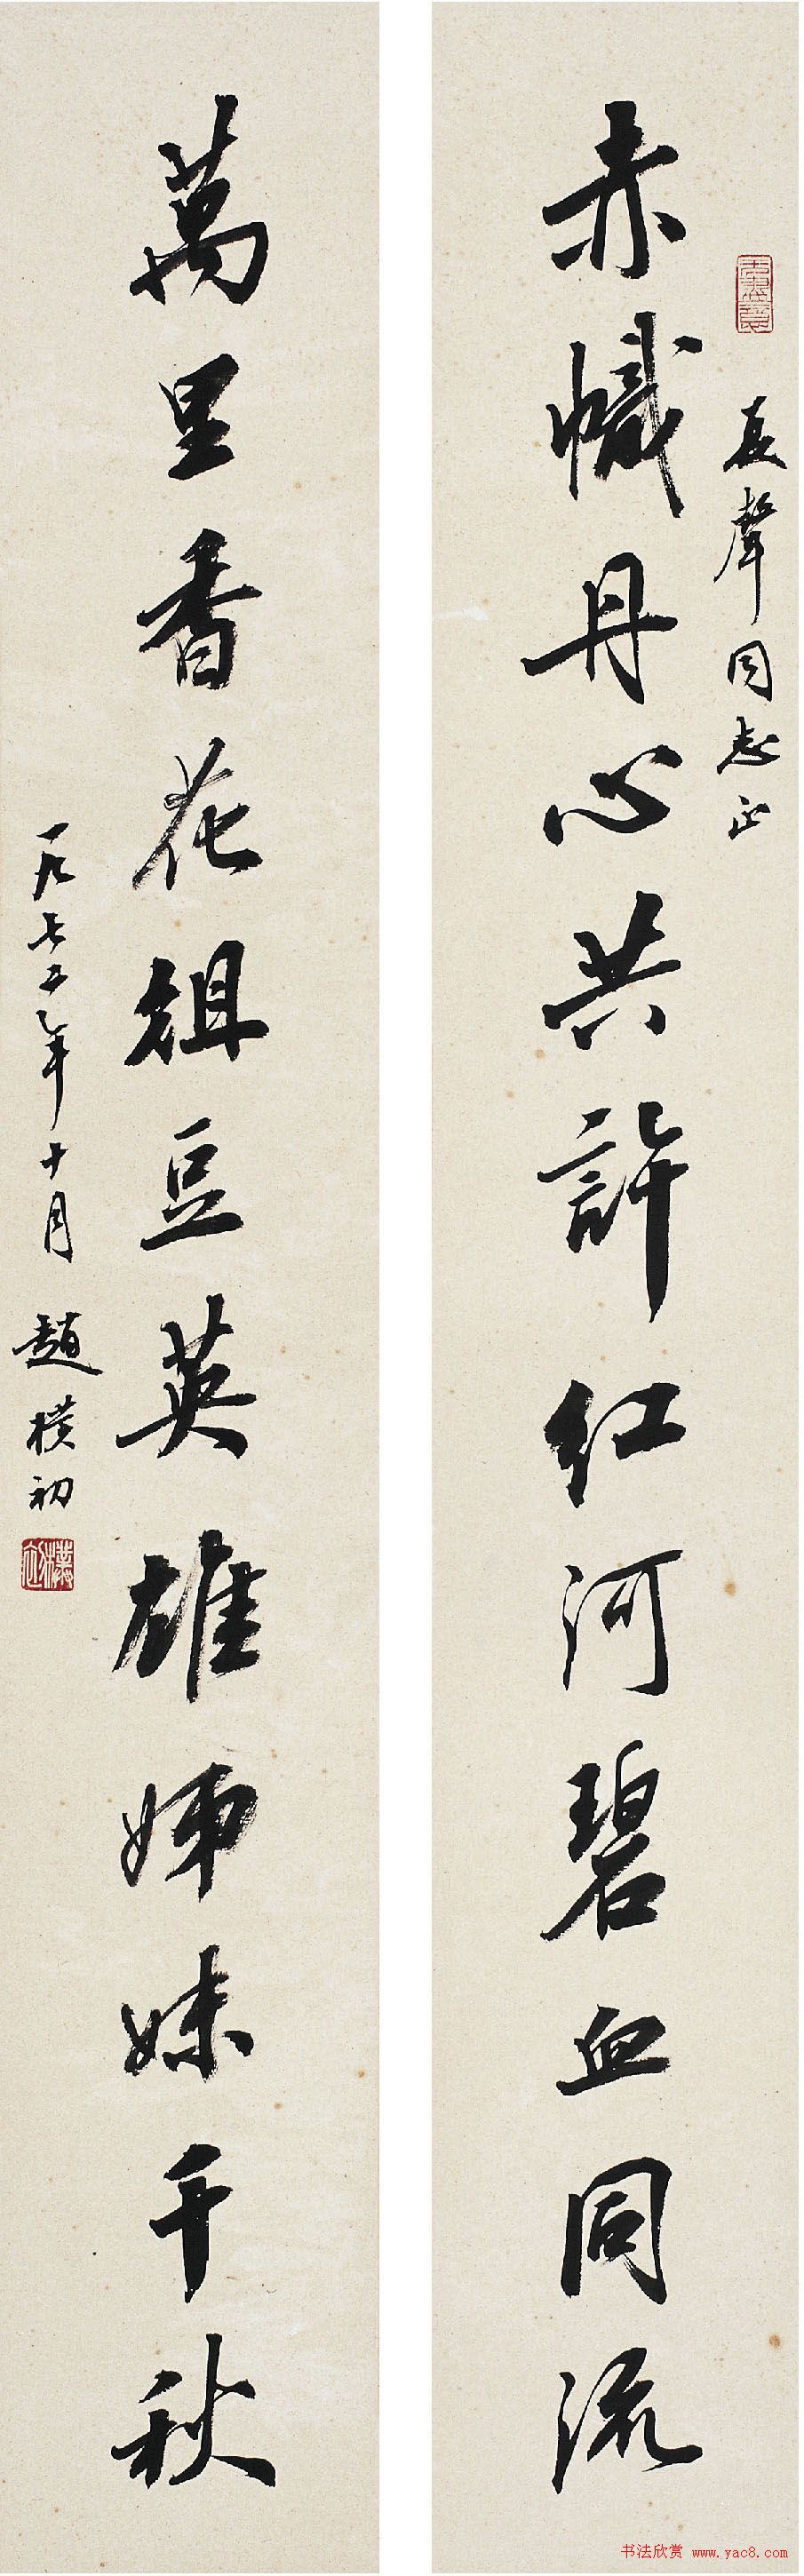 聲同志正
赤幟丹心共許红河碧血同流
萬里香花俎豆英雄姊妹千秋
一九七五年十月 趙樸初
书法欣赏 www.yac8.com